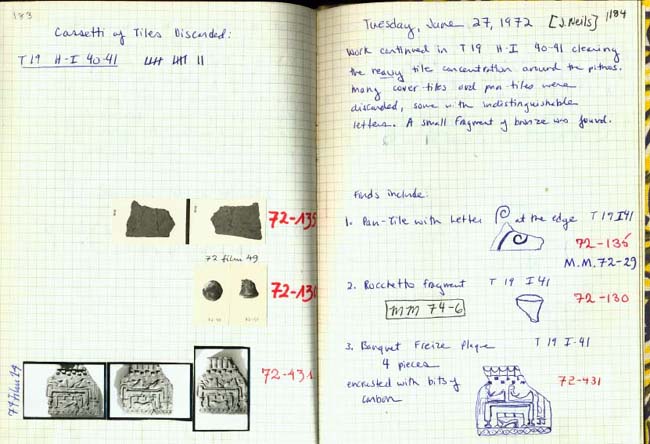 183
Cassetti of Tiles Discarded:
T 19 H-I 40-41
72-135
72 film 49
72-130
72-431
Tuesday, June 27, 1972 [J. Neils]
184
Work continued in T 19 H-I 40-41 cleaning
the heavy tile concentration around the pithos.
Many cover tiles and pan tiles were
discarded, some with indistinguishable
letters. A small fragment of bronze was found.
Finds include:
1. Pan-Tile with Letter at the edge T 19 I 41
72-135
M.M. 72-29
2. Rocchetto fragment T 19 I 41
MM 74-6
72-130
3. Banquet Freize Plaque T 19 I-41
4 pieces
encrusted with bits of
carbon
72-431